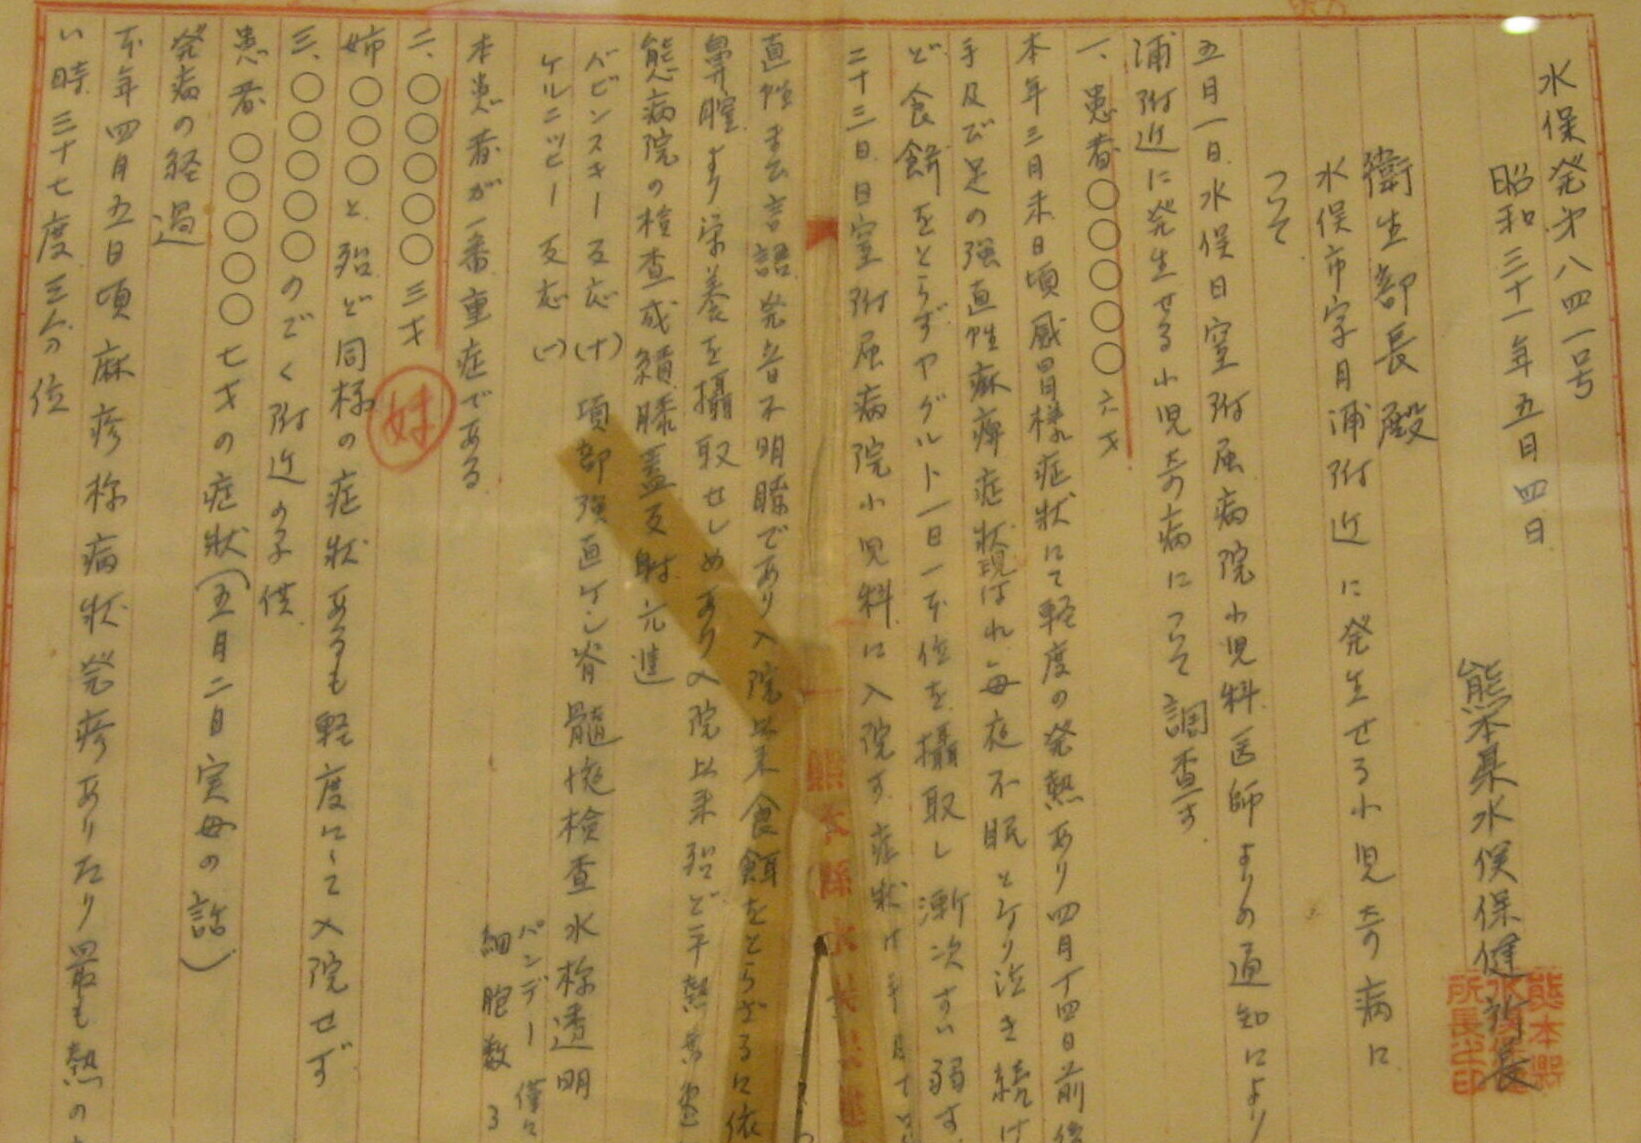 水保発第八四一号
昭和三十一年五月四日
熊本県水俣保健所長
衛生部長殿
水俣市字月浦附近に発生せる小児奇病に
ついて
五月一日水俣日窒附属病院小児科医師よりの通知により
浦附近に発生せる小児奇病について調査す
一、患者〇〇〇〇六才
本年三月末日頃感冒様症状にて軽度の発熱あり四月十四日前
手及び足の強直性麻痺症状現はれ毎夜不眠となり泣き続け
ど食餌をとらずヤグルト一日一本位を攝取し漸次すい弱す
二十三日日窒附属病院小児科に入院す症状は
直性を言語発音不明瞭であり入院以来食餌をとらざるに依
鼻腔より栄養を攝取せしめあり入院以来殆ど平熱
態病院の検査成績膝蓋反射亢進
バビンスキー反応(十)項部強直ケン脊髄液検査水様透明
ケルニッヒー反応(一)
パンデー僅に
細胞数
本患者が一番重症である
二、〇〇〇〇〇三才
妹
姉〇〇〇と殆ど同様の症状あるも軽度にして入院せず
三、〇〇〇〇のごく附近の子供
患者〇〇〇〇〇七才の症状(五月二日実母の話)
発病の経過
本年四月五日頃麻疹様病状発疹ありたり最も熱の
い時三十七度三分位
熊本縣水俣